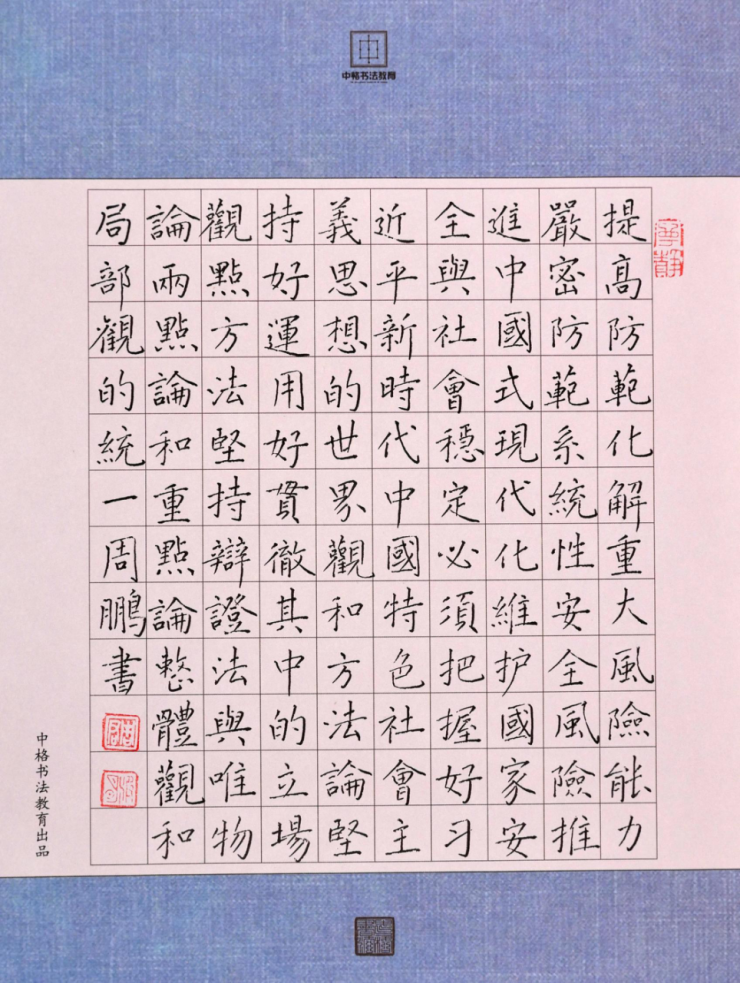 中格书法教育
提高防範化解重大風險能力
嚴密防範系統性安全風險推
進中國式現代化維护國家安
全與社會穩定必須把握好习
近平新時代中國特色社會主
義思想的世界觀和方法論堅
持好運用好貫徹其中的立場
觀點方法堅持辯證法與唯物
論兩點論和重點論整體觀和
局部觀的統一周鵬書
中格书法教育出品